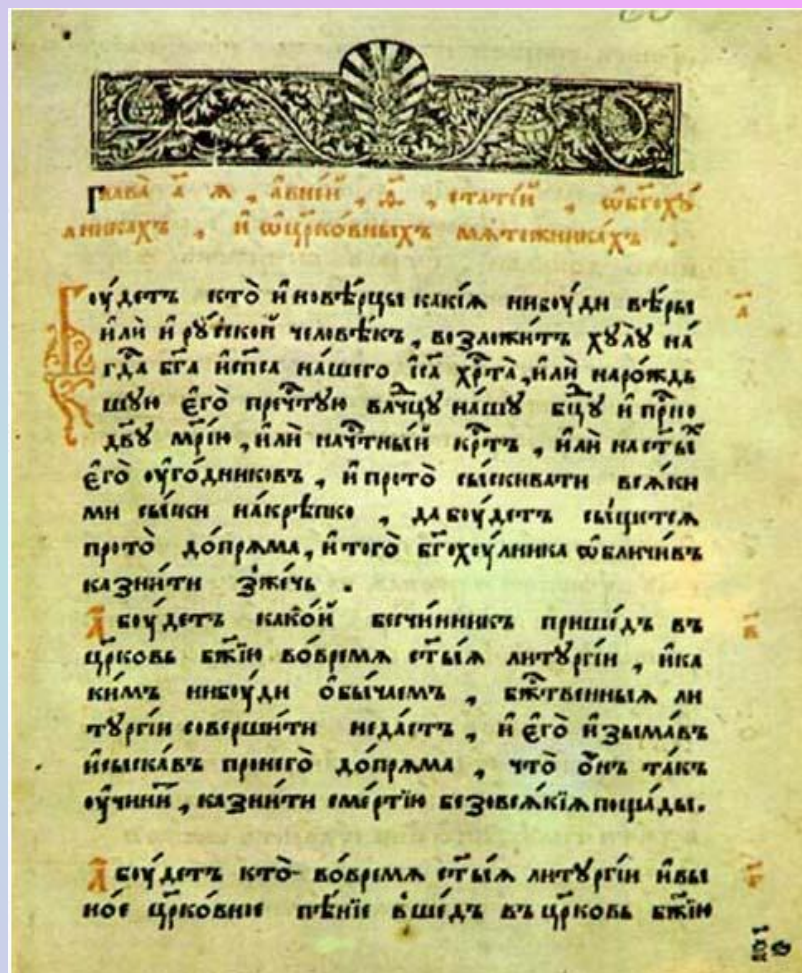 Глава̀ а҃ я , авне́й , ѳ҃ , стате́й , ѡбг҃охꙋ
лникахъ , и҆ ѡцр҃ко́вныхъ мѧте́жникахъ .
Боу́детъ кто̀ и҆нове́рцы какі́ѧ нибоу́ди вѣ́ры
и҆лѝ и҆ рꙋ́ской человѣ́къ , возложи́тъ хꙋлꙋ̀ на́
гд҇а бг҃а и҆ сп҃са на́шего і҆с҃а хр҇та̀ , и҆лѝ наро́ждь
шꙋю є҆го̀ преч҇тꙋю влⷣчцꙋ на́шꙋ бц҃ꙋ и҆ прⷭ҇но
дв҃ꙋ мр҃їю , и҆лѝ нач҇тны́й кр҇тъ , и҆лѝ наст҃ы́хъ
є҆го̀ оу҆го́дниковъ , и҆ прото̀ сы́скивати всѧ́ки
ми сы́ски на́крѣпко , да боу́детъ сы́щетсѧ
прото̀ до́прѧма , и҆ того̀ бг҃охоу́лника ѡ҆бличи́въ
казни́ти зже́чь .
А҆ боу́детъ како́й безчи́нникъ прише́дъ въ
цр҃ковь бж҃їю во́времѧ ст҃ы́ѧ литꙋргі́и , и҆ка
ки́мъ нибоу́ди ѻ҆бы́чаемъ , бж҇твенныѧ ли
тꙋргі́и соверши́ти неда́стъ , и҆ є҆го̀ и҆зыма́въ
и҆сыска́въ пронего̀ до́прѧма , что̀ ѻ҆́нъ та́къ
оу҆чини́тъ , казни́ти сме́ртїю безовсѧ́кїѧ поща́ды .
А҆ боу́детъ кто̀ во́времѧ ст҃ы́ѧ литꙋргі́и и҆вы
но́е цр҃ко́вное пѣ́нїе вше́дъ въ цр҃ковь бж҃їю
а҃
в҃
г҃